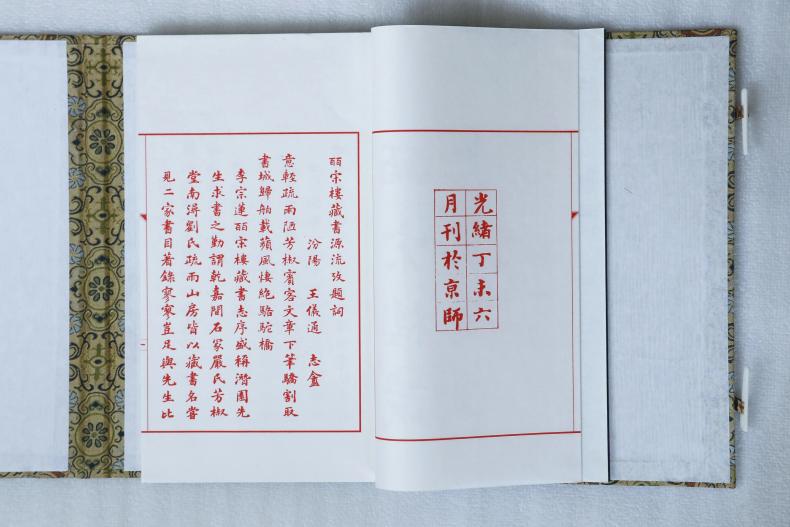 光緒丁未六
月刊於京師
皕宋樓藏書源流攷題詞
汾陽 王儀通 志盦
意輕疏雨陋芳椒賓客文章下筆驕割取
書城歸舶載蘋風悽絶駱駝橋
李宗蓮皕宋樓藏書志序盛稱潛園先
生求書之勤謂乾嘉間石冢嚴氏芳椒
堂南潯劉氏疏雨山房皆以藏書名嘗
見二家書目著錄寥寥豈足與先生比
一